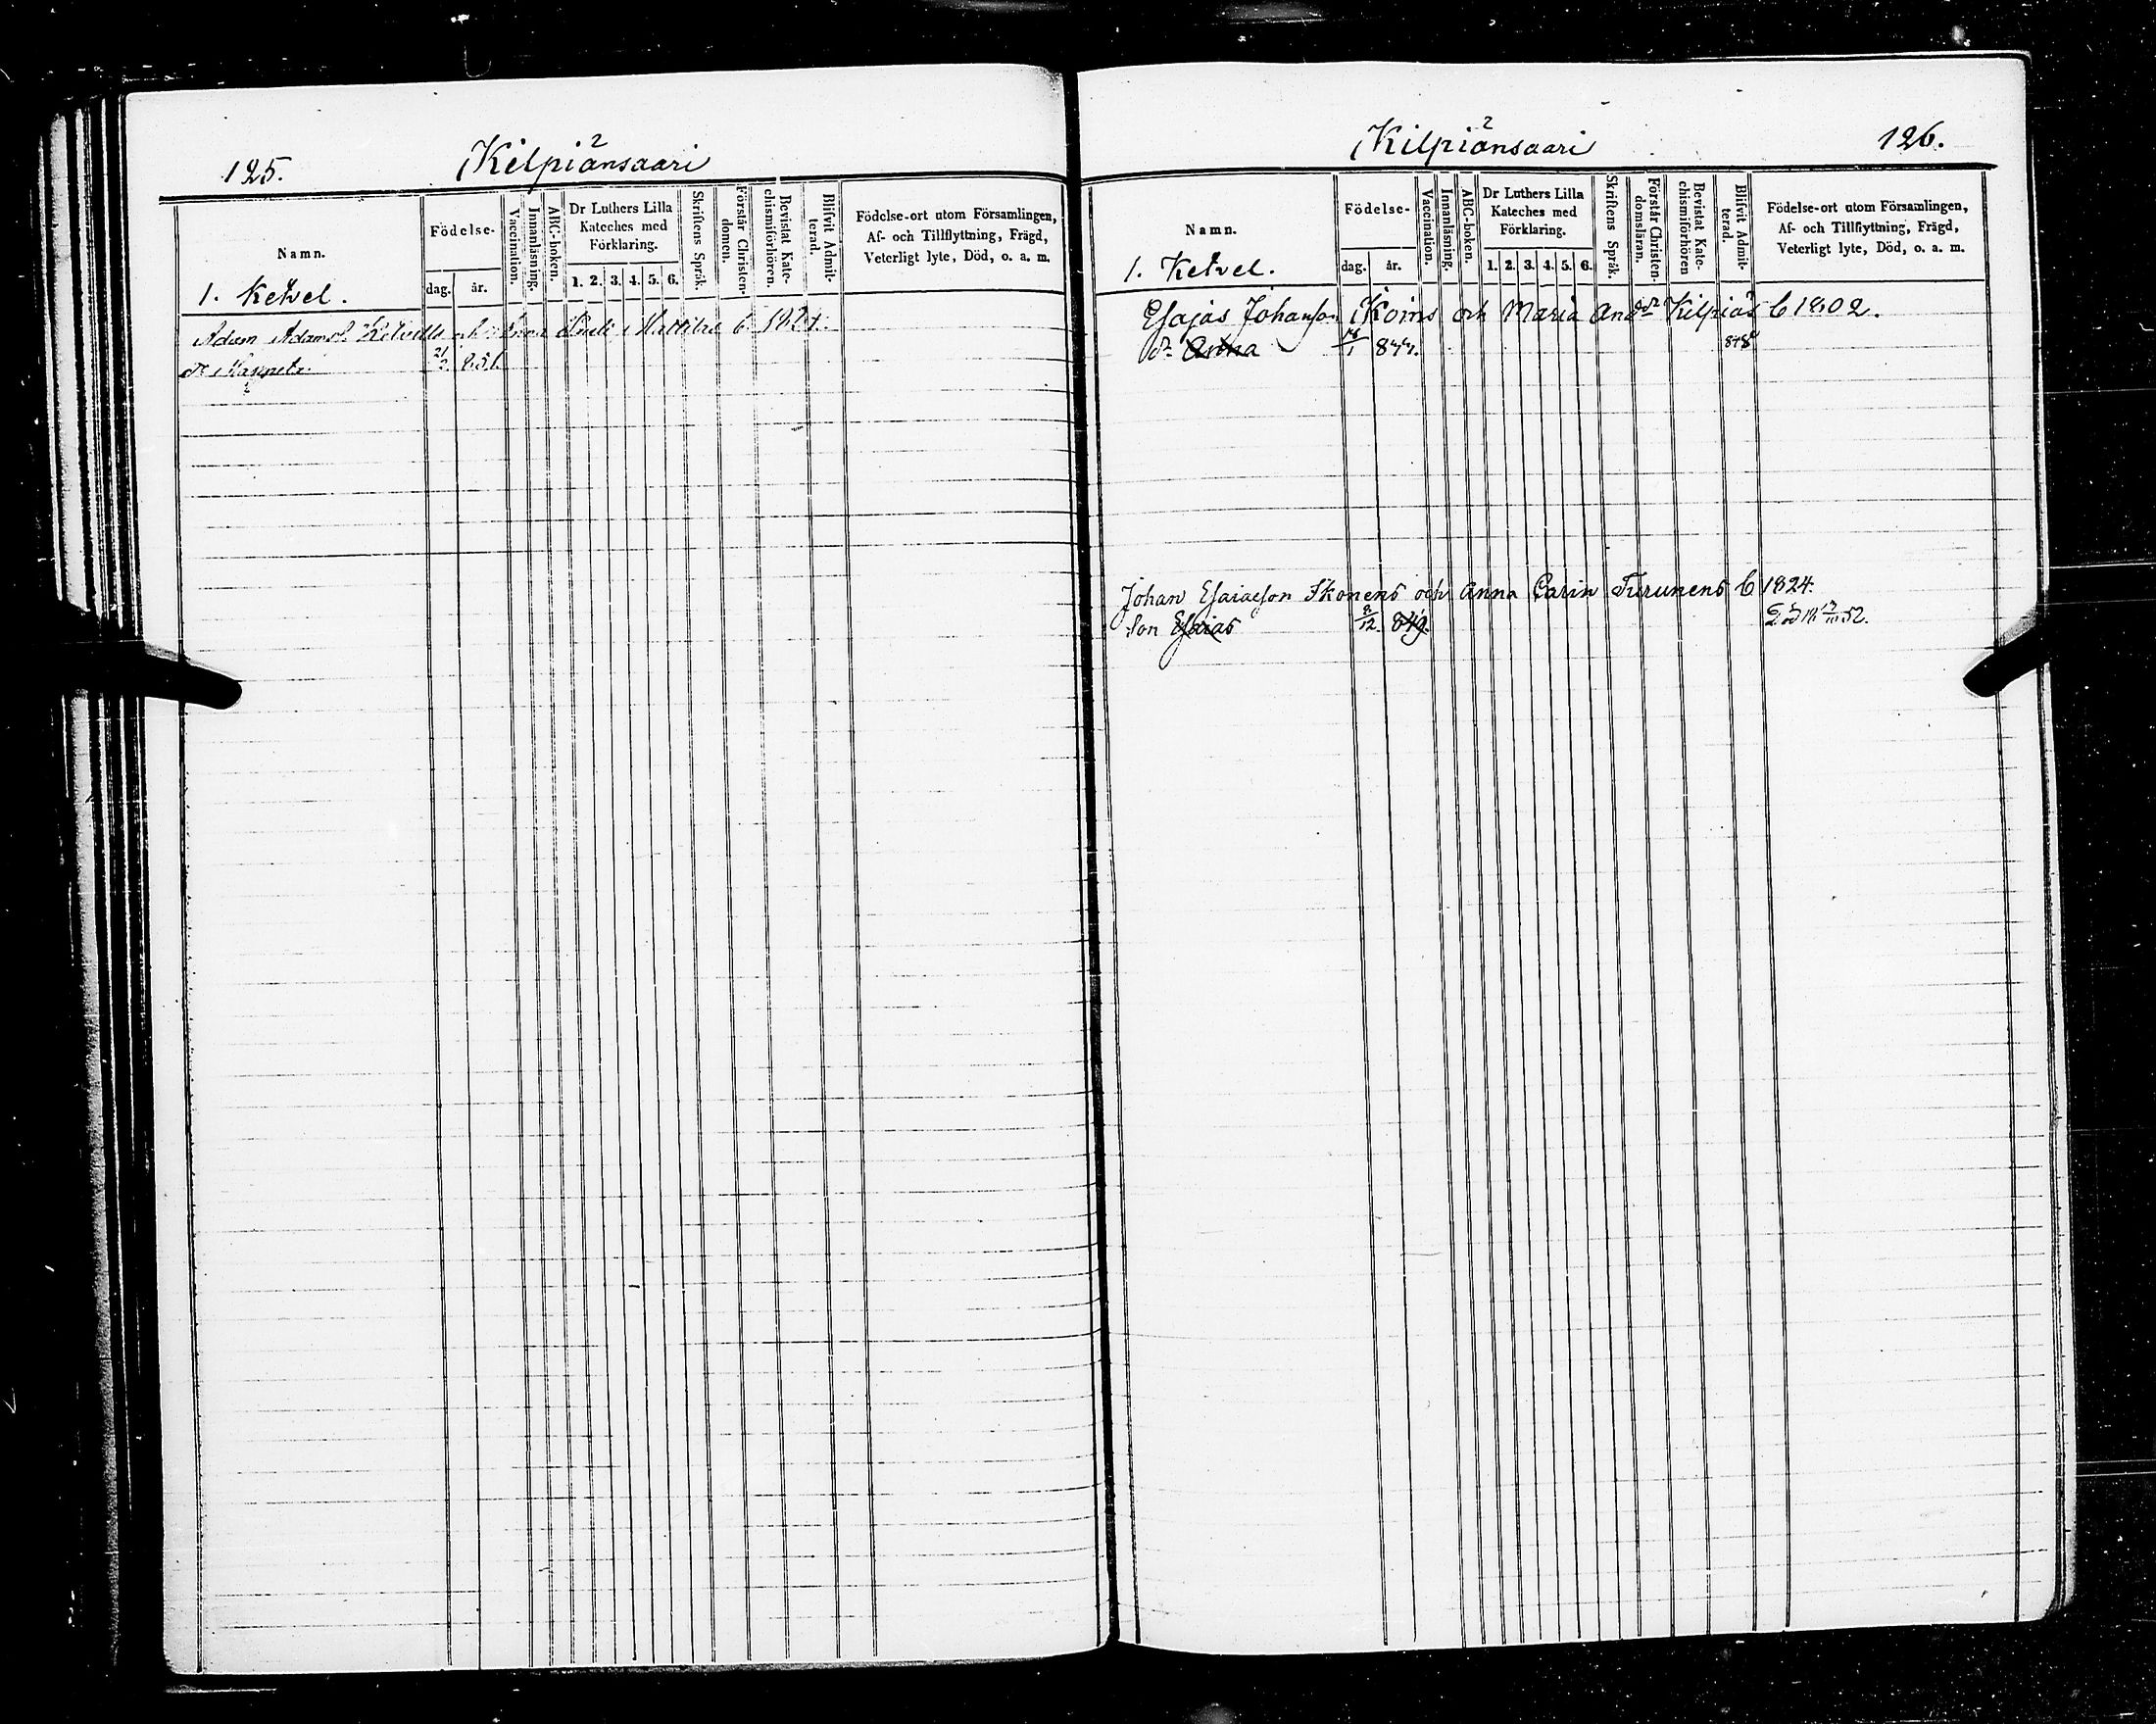 125.
Kilpiänsaari
2
Namn.
Födelse-
dag. år.
Vaccination.
Innanläsning.
ABC-boken.
Dr Luthers Lilla Kateches med Förklaring.
1. 2. 3. 4. 5. 6.
Skriftens Språk.
Förstår Christen-domen.
Bevistat Kate-chismiförhören.
Blifvit Admit-terad.
Födelse-ort utom Församlingen,
Af- och Tillflyttning, Frägd,
Veterligt lyte, Död, o. a. m.
1. Ketvel.
Adam Adams. Ketvells och Anna 1824.
21/2 851.
Kilpiänsaari
2
126.
Namn.
Födelse-
dag. år.
Vaccination.
Innanläsning.
ABC-boken.
Dr Luthers Lilla
Kateches med
Förklaring.
1. 2. 3. 4. 5. 6.
Skriftens Språk.
Förstår Christen-domsläran.
Bevistat Kate-chismiförhören
Blifvit Admit-terad.
Födelse-ort utom Församlingen,
Af- och Tillflyttning, Frägd,
Veterligt lyte, Död, o. a. m.
1. Ketvel.
Esajas Johanson Ikoins och Maria And dr Kilpiäs C 1802.
dr Anna 844. 878
Johan Esaiaeson Ikonens och Anna Carin Turunens C 1824.
Son Esaias 8/12. 849. Död 52.